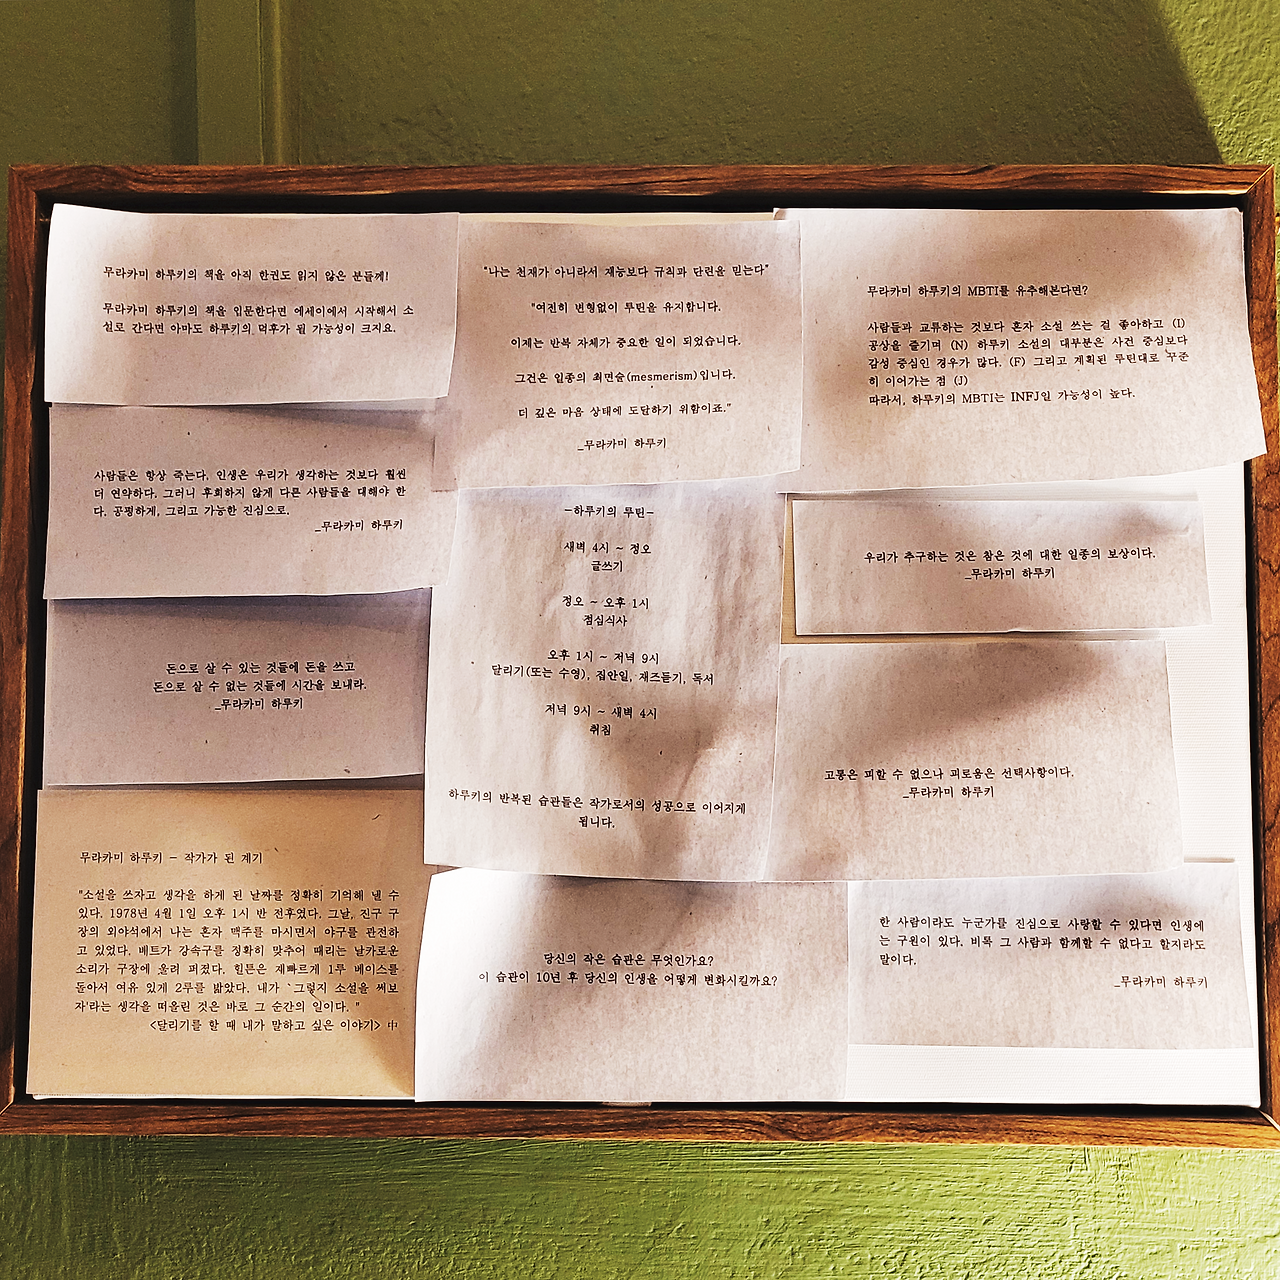 무라카미 하루키의 책을 아직 한권도 읽지 않은 분들께!
무라카미 하루키의 책을 입문한다면 에세이에서 시작해서 소
설로 간다면 아마도 하루키의 덕후가 될 가능성이 크지요.
사람들은 항상 죽는다. 인생은 우리가 생각하는 것보다 훨씬
더 연약하다. 그러니 후회하지 않게 다른 사람들을 대해야 한
다. 공평하게, 그리고 가능한 진심으로.
_무라카미 하루키
돈으로 살 수 있는 것들에 돈을 쓰고
돈으로 살 수 없는 것들에 시간을 보내라.
_무라카미 하루키
무라카미 하루키 - 작가가 된 계기
"소설을 쓰자고 생각을 하게 된 날짜를 정확히 기억해 낼 수
있다. 1978년 4월 1일 오후 1시 반 전후였다. 그날, 진구 구
장의 외야석에서 나는 혼자 맥주를 마시면서 야구를 관전하
고 있었다. 배트가 강속구를 정확히 맞추어 때리는 날카로운
소리가 구장에 울려 퍼졌다. 힐튼은 재빠르게 1루 베이스를
돌아서 여유 있게 2루를 밟았다. 내가 `그렇지 소설을 써보
자'라는 생각을 떠올린 것은 바로 그 순간의 일이다. "
<달리기를 할 때 내가 말하고 싶은 이야기> 中
"나는 천재가 아니라서 재능보다 규칙과 단련을 믿는다"
"여전히 변형없이 루틴을 유지합니다.
이제는 반복 자체가 중요한 일이 되었습니다.
그건은 일종의 최면술(mesmerism)입니다.
더 깊은 마음 상태에 도달하기 위함이죠."
_무라카미 하루키
-하루키의 루틴-
새벽 4시 ~ 정오
글쓰기
정오 ~ 오후 1시
점심식사
오후 1시 ~ 저녁 9시
달리기(또는 수영), 집안일, 재즈듣기, 독서
저녁 9시 ~ 새벽 4시
취침
하루키의 반복된 습관들은 작가로서의 성공으로 이어지게
됩니다.
당신의 작은 습관은 무엇인가요?
이 습관이 10년 후 당신의 인생을 어떻게 변화시킬까요?
무라카미 하루키의 MBTI를 유추해본다면?
사람들과 교류하는 것보다 혼자 소설 쓰는 걸 좋아하고 (I)
공상을 즐기며 (N) 하루키 소설의 대부분은 사건 중심보다
감성 중심인 경우가 많다. (F) 그리고 계획된 루틴대로 꾸준
히 이어가는 점 (J)
따라서, 하루키의 MBTI는 INFJ일 가능성이 높다.
우리가 추구하는 것은 참은 것에 대한 일종의 보상이다.
_무라카미 하루키
고통은 피할 수 없으나 괴로움은 선택사항이다.
_무라카미 하루키
한 사람이라도 누군가를 진심으로 사랑할 수 있다면 인생에
는 구원이 있다. 비록 그 사람과 함께할 수 없다고 할지라도
말이다.
_무라카미 하루키